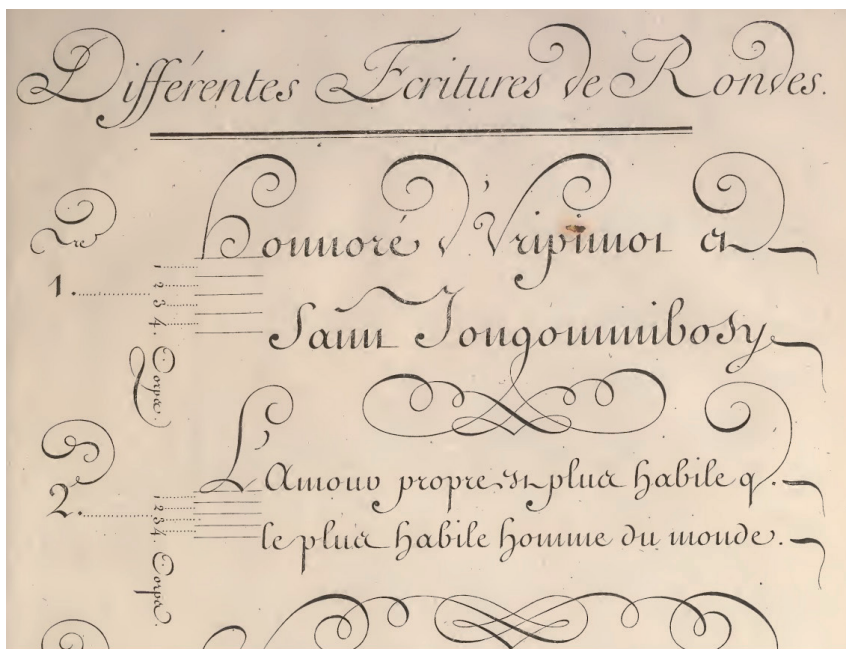 Différentes Ecritures de Rondes.
1re
1.
1 2 3 4. Corps.
Honnoré d'Vripinnoi et
Sann Jongomminbosy
2e
2.
1 2 3 4. Corps.
L'Amour propre est plus habile q.
le plus habile homme du monde.